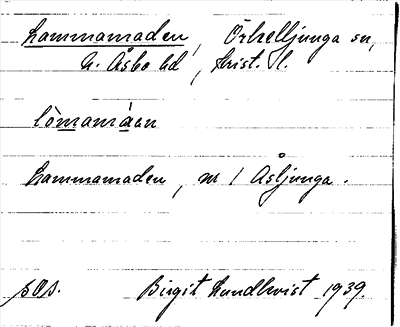 Lammamaden, Örkelljunga sn,
N. Åsbo hd, Krist. l.
lòmamáen
Lammamaden, nr 1 Åsljunga.
Birgit Lundkvist 1939.